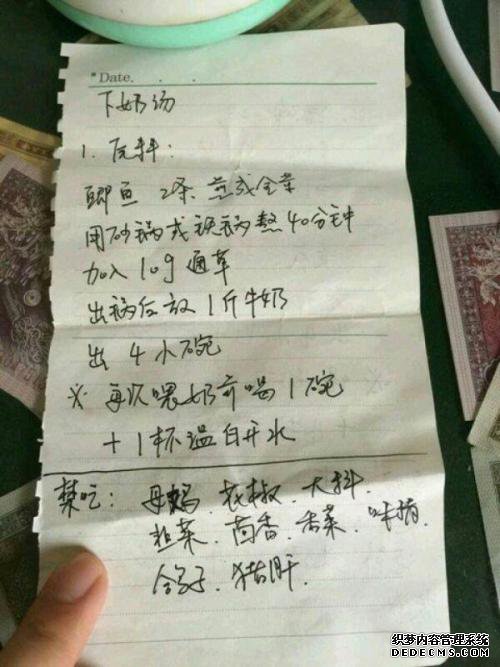 Date. . .
下奶汤
1. 原料:
鲫鱼 2条 煎成金黄
用砂锅或铁锅熬40分钟
加入10g通草
出锅后放1斤牛奶
出4小碗
※ 再次喂奶前喝1碗
+1杯温白开水
禁吃: 花椒、大料、
韭菜、茴香、香菜、味精、
猪肝.
织梦内容管理系统
DEDECMS.COM